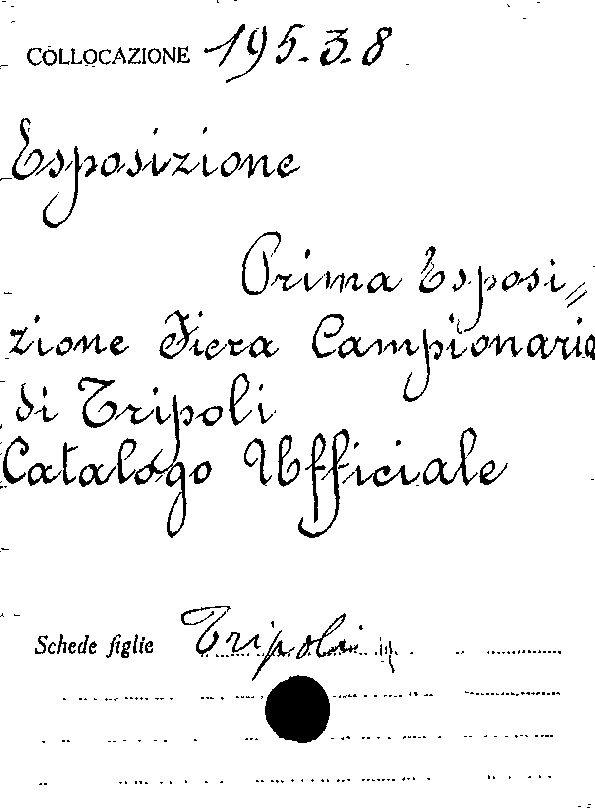 COLLOCAZIONE 195.3.8
Esposizione
Prima Esposi=
zione Fiera Campionaria
di Tripoli
Catalogo Ufficiale
Schede figlie Tripoli